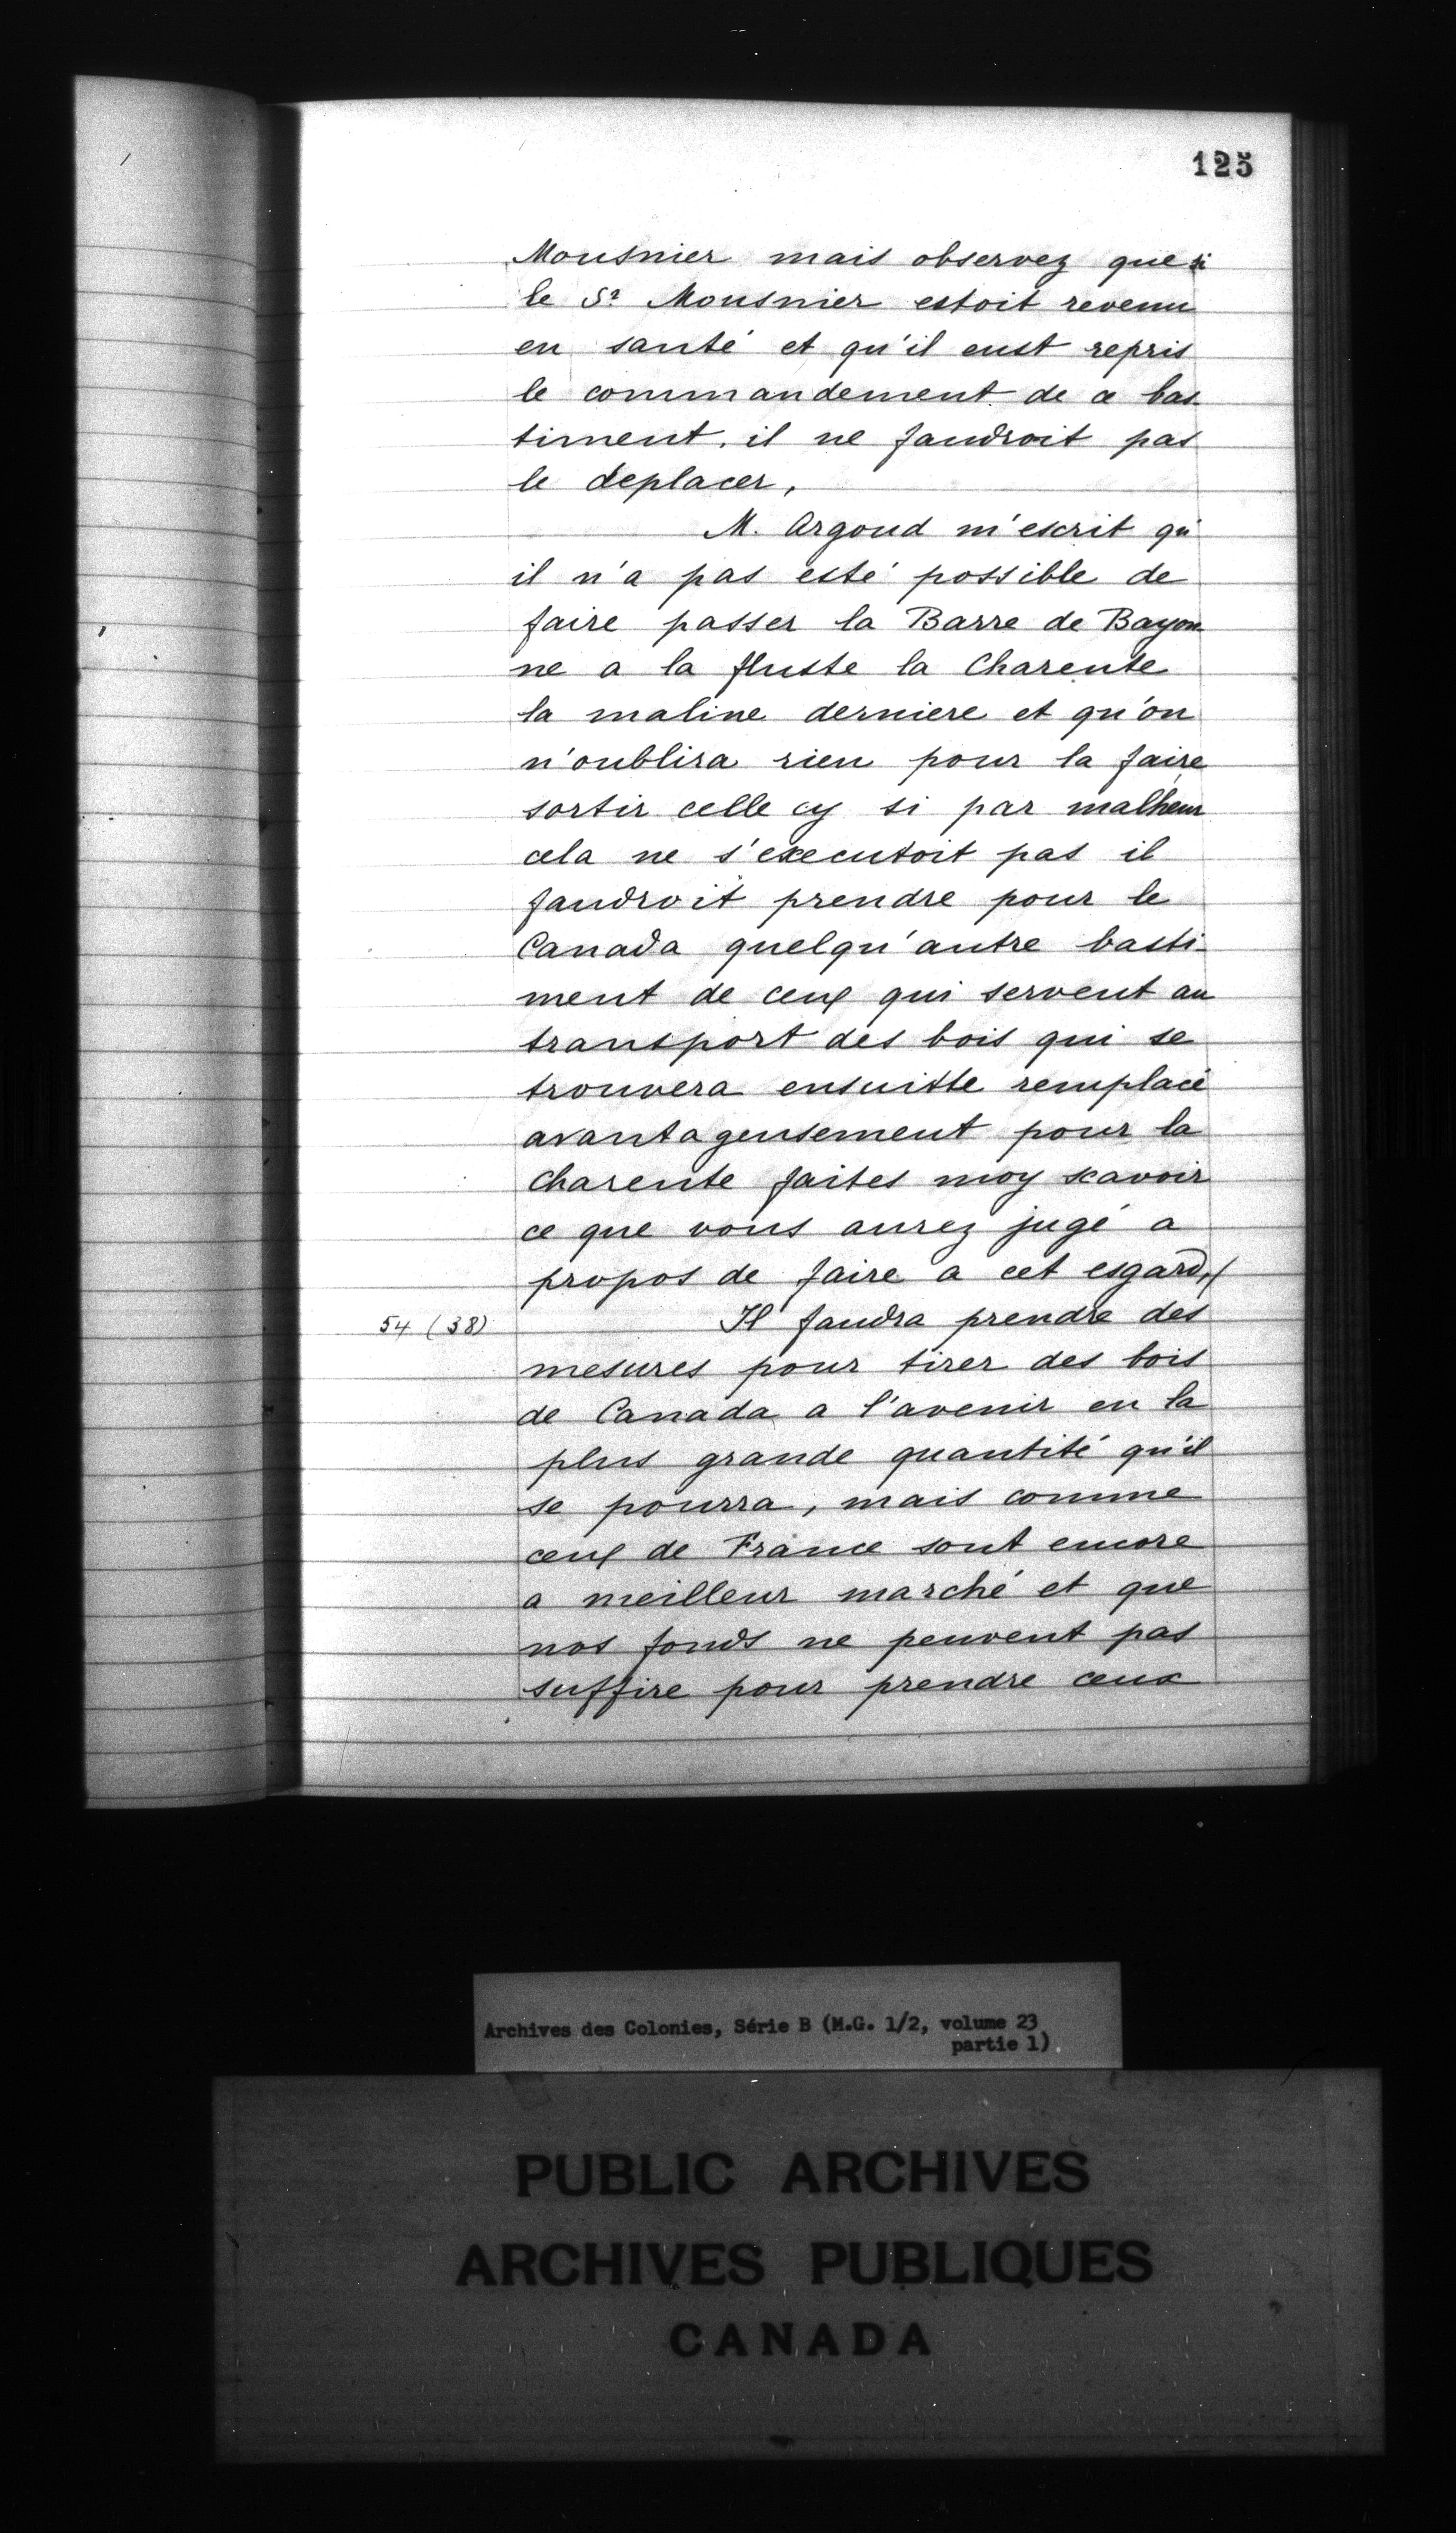 125
Mousnier mais observez que si
le Sr Mousnier estoit revenu
en santé et qu'il eust repris
le commandement de ce bas-
timent, il ne faudroit pas
le deplacer,
M. Argoud m'escrit qu'
il n'a pas esté possible de
faire passer la Barre de Bayon-
ne a la fluste la Charente
la maline derniere et qu'on
n'oublira rien pour la faire
sortir celle cy si par malheur
cela ne s'executoit pas il
faudroit prendre pour le
Canada quelqu'autre basti-
ment de ceux qui servent au
transport des bois qui se
trouvera ensuitte remplacé
avantageusement pour la
Charente faites moy scavoir
ce que vous aurez jugé a
propos de faire a cet esgard,/
54 (38) Il faudra prendre des
mesures pour tirer des bois
de Canada a l'avenir en la
plus grande quantité qu'il
se pourra, mais comme
ceux de France sont encore
a meilleur marché et que
nos fonds ne peuvent pas
suffire pour prendre ceux
Archives des Colonies, Série B (M.G. 1/2, volume 23
partie 1)
PUBLIC ARCHIVES
ARCHIVES PUBLIQUES
CANADA